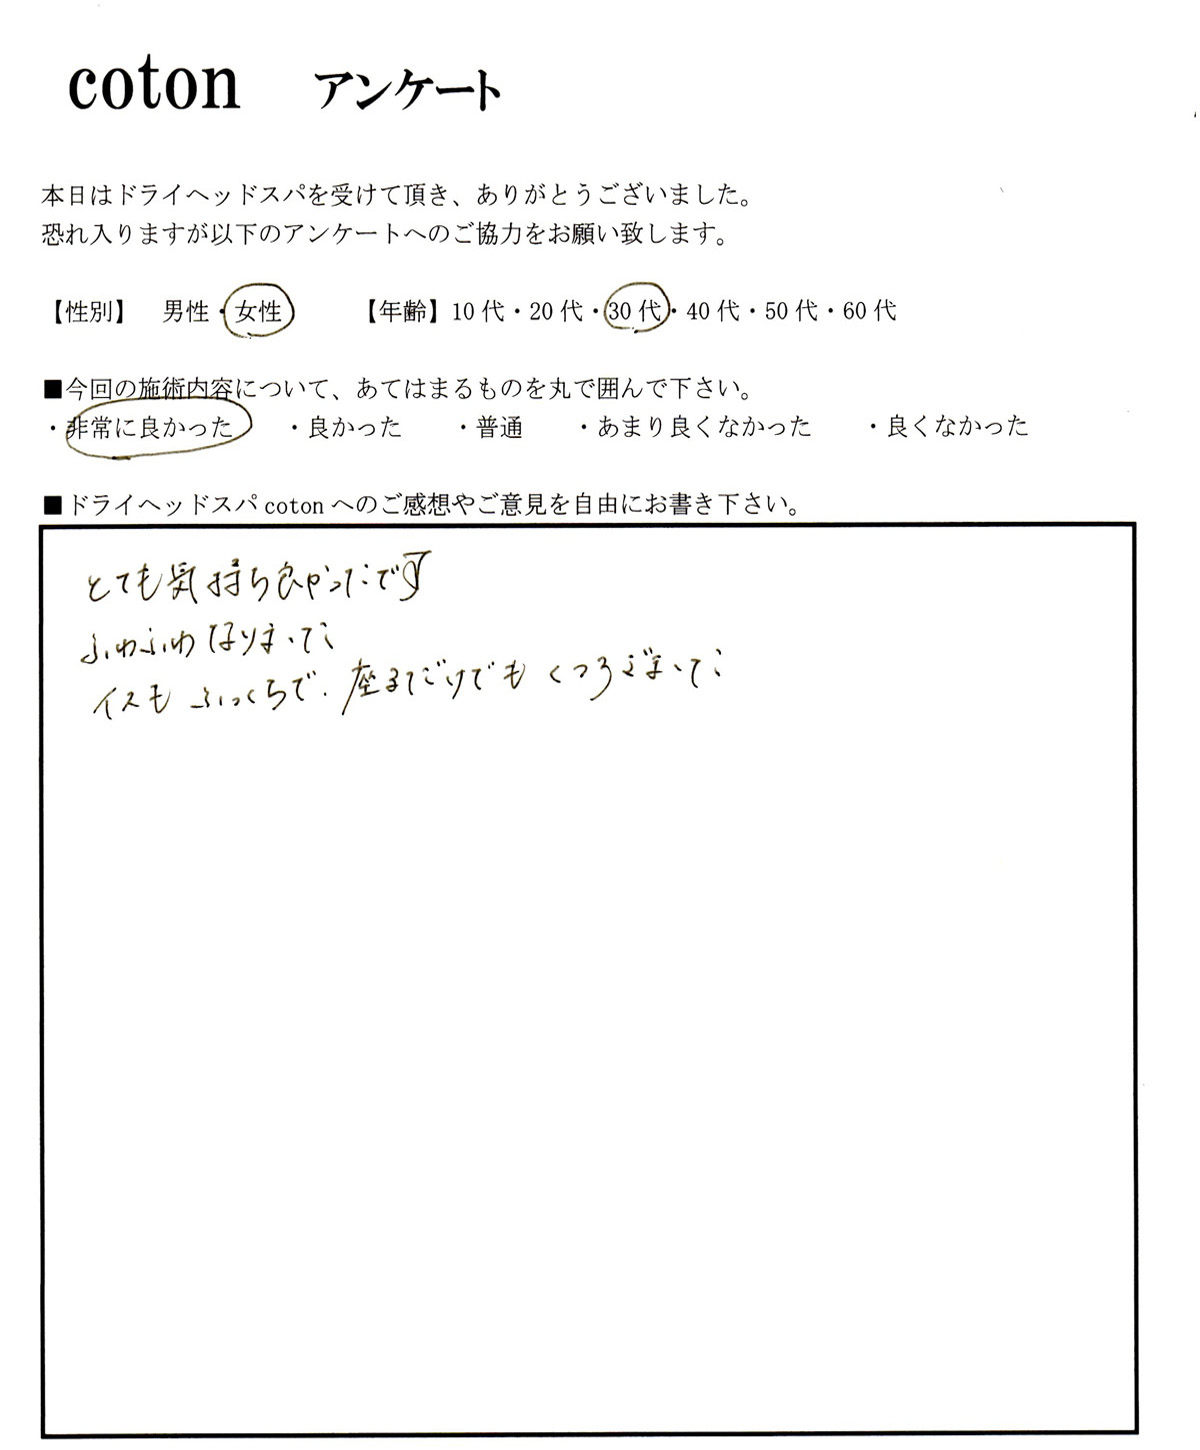 coton アンケート
本日はドライヘッドスパを受けて頂き、ありがとうございました。
恐れ入りますが以下のアンケートへのご協力をお願い致します。
【性別】 男性・女性 【年齢】10代・20代・30代・40代・50代・60代
■今回の施術内容について、あてはまるものを丸で囲んで下さい。
・非常に良かった ・良かった ・普通 ・あまり良くなかった ・良くなかった
■ドライヘッドスパcotonへのご感想やご意見を自由にお書き下さい。
とても気持ち良かったです
ふわふわなりました
イスもふっくらで、座るだけでもくつろぎました